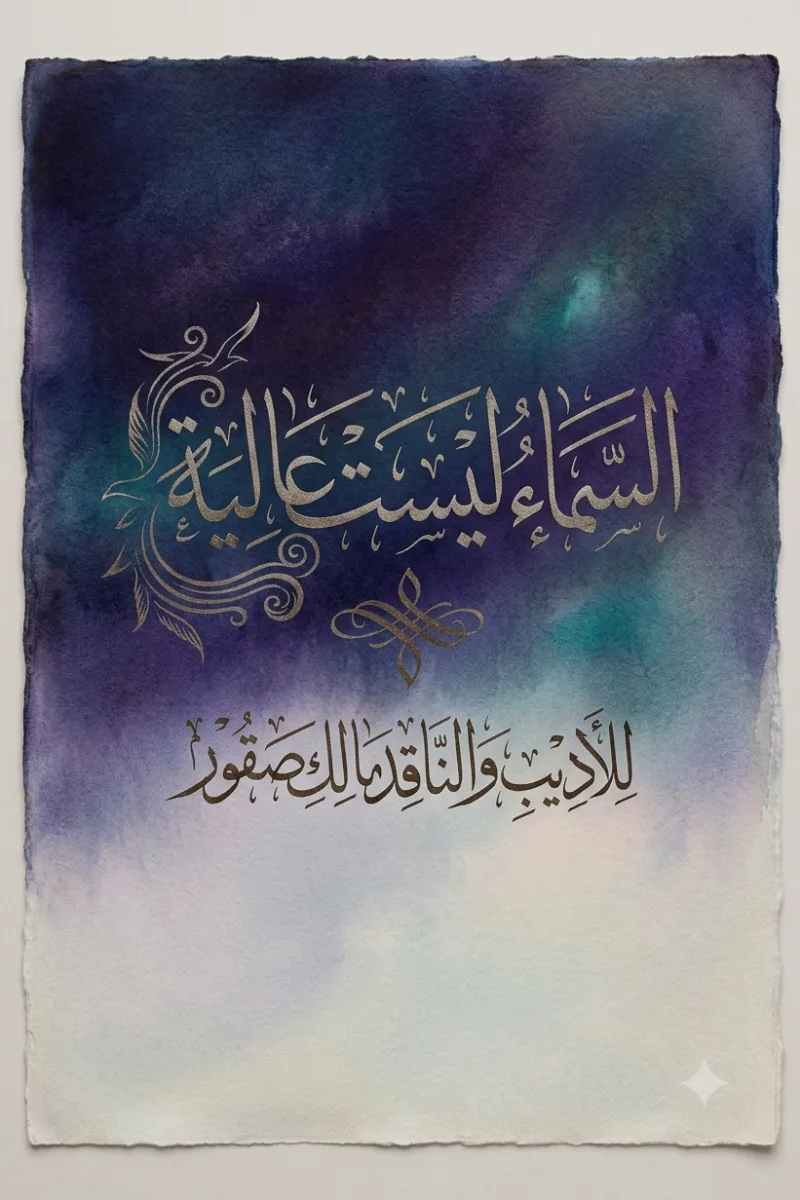 السَّمَاءُ لَيْسَتْ عَالِيَة
لِلأَدِيْبِ وَالنَّاقِد مَالِكِ صَقُوْر